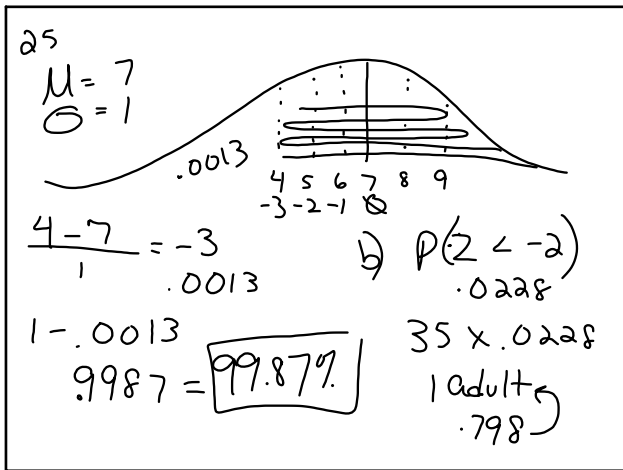 25
μ = 7
σ = 1
.0013
4 5 6 7 8 9
-3 -2 -1 0
4-7/1 = -3
.0013
1-.0013
.9987 = 99.87%
b) P(Z < -2)
.0228
35 x .0228
1 adult
.798